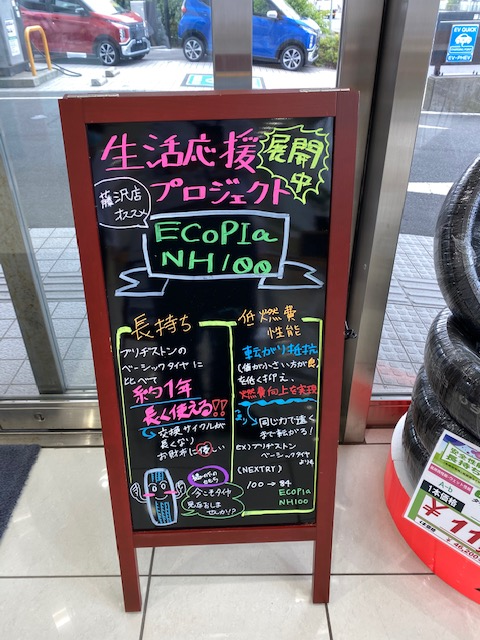 生活応援
展開中
プロジェクト
藤沢店
オススメ
ECOPIA
NH100
長持ち
ブリヂストンの
ベーシックタイヤに
比べて
約1年
長く使える!!
交換サイクルが
長くなり
お財布に優しい
今こそタイヤ
見直しませんか?
低燃費
性能
転がり抵抗
(値が小さい方が良)
を低く抑え、
燃費向上を実現
同じ力で遠く
まで転がる!
ex)ブリヂストン
ベーシックタイヤより
(NEXTRY)
100 → 84
ECOPIA
NH100
EV QUICK
EV・PHEV
1本価格